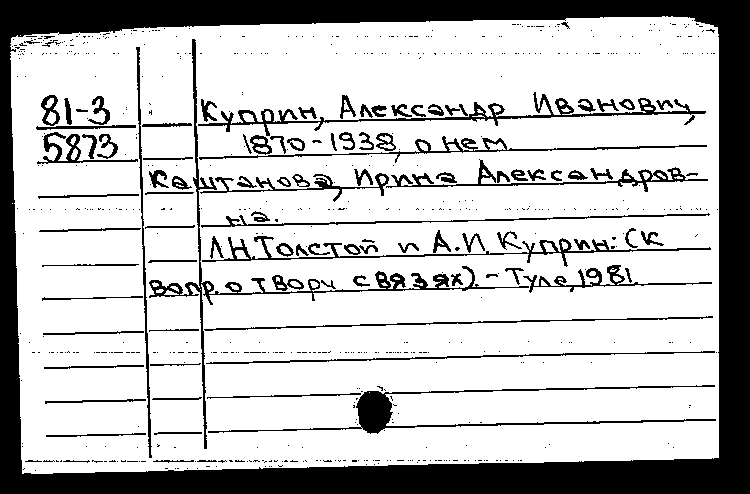 81-3 Куприн, Александр Иванович,
5873 1870-1938, о нем
Каштанова, Ирина Александров-
на.
Л.Н.Толстой и А.И. Куприн: (к
вопр. о творч связях). - Тула, 1981.